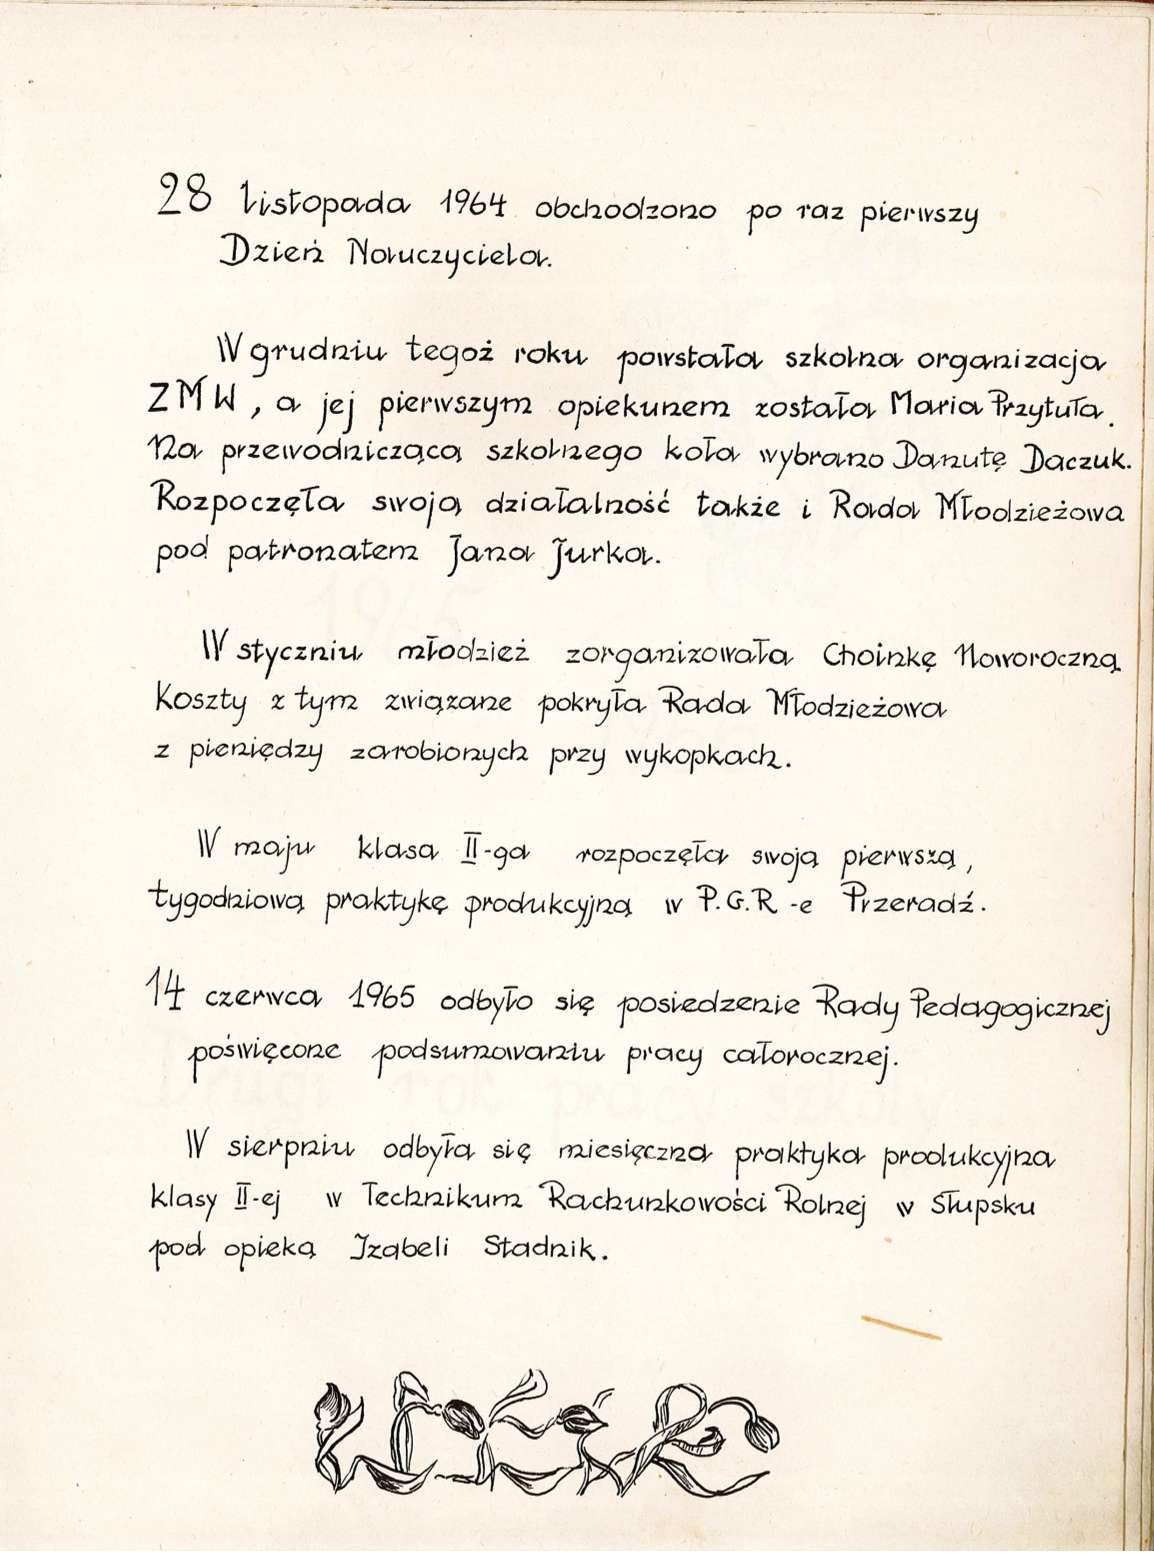 28 listopada 1964 obchodzono po raz pierwszy
Dzień Nauczyciela.
W grudniu tegoż roku powstała szkolna organizacja
ZMW, a jej pierwszym opiekunem została Maria Przytuła.
Na przewodniczącą szkolnego koła wybrano Danutę Daczuk.
Rozpoczęła swoją działalność także i Rada Młodzieżowa
pod patronatem Jana Jurka.
W styczniu młodzież zorganizowała Choinkę Noworoczną
Koszty z tym związane pokryła Rada Młodzieżowa
z pieniędzy zarobionych przy wykopkach.
W maju klasa II-ga rozpoczęła swoją pierwszą,
tygodniową praktykę produkcyjną w P.G.R-e Przeradź.
14 czerwca 1965 odbyło się posiedzenie Rady Pedagogicznej
poświęcone podsumowaniu pracy całorocznej.
W sierpniu odbyła się miesięczna praktyka produkcyjna
klasy II-ej w Technikum Rachunkowości Rolnej w Słupsku
pod opieką Izabeli Stadnik.